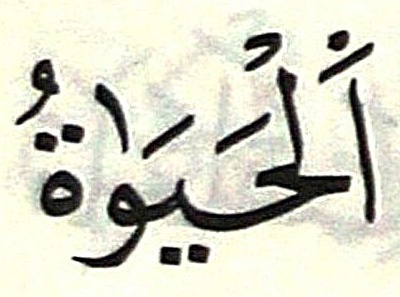 اَلْحَيَوٰةُ